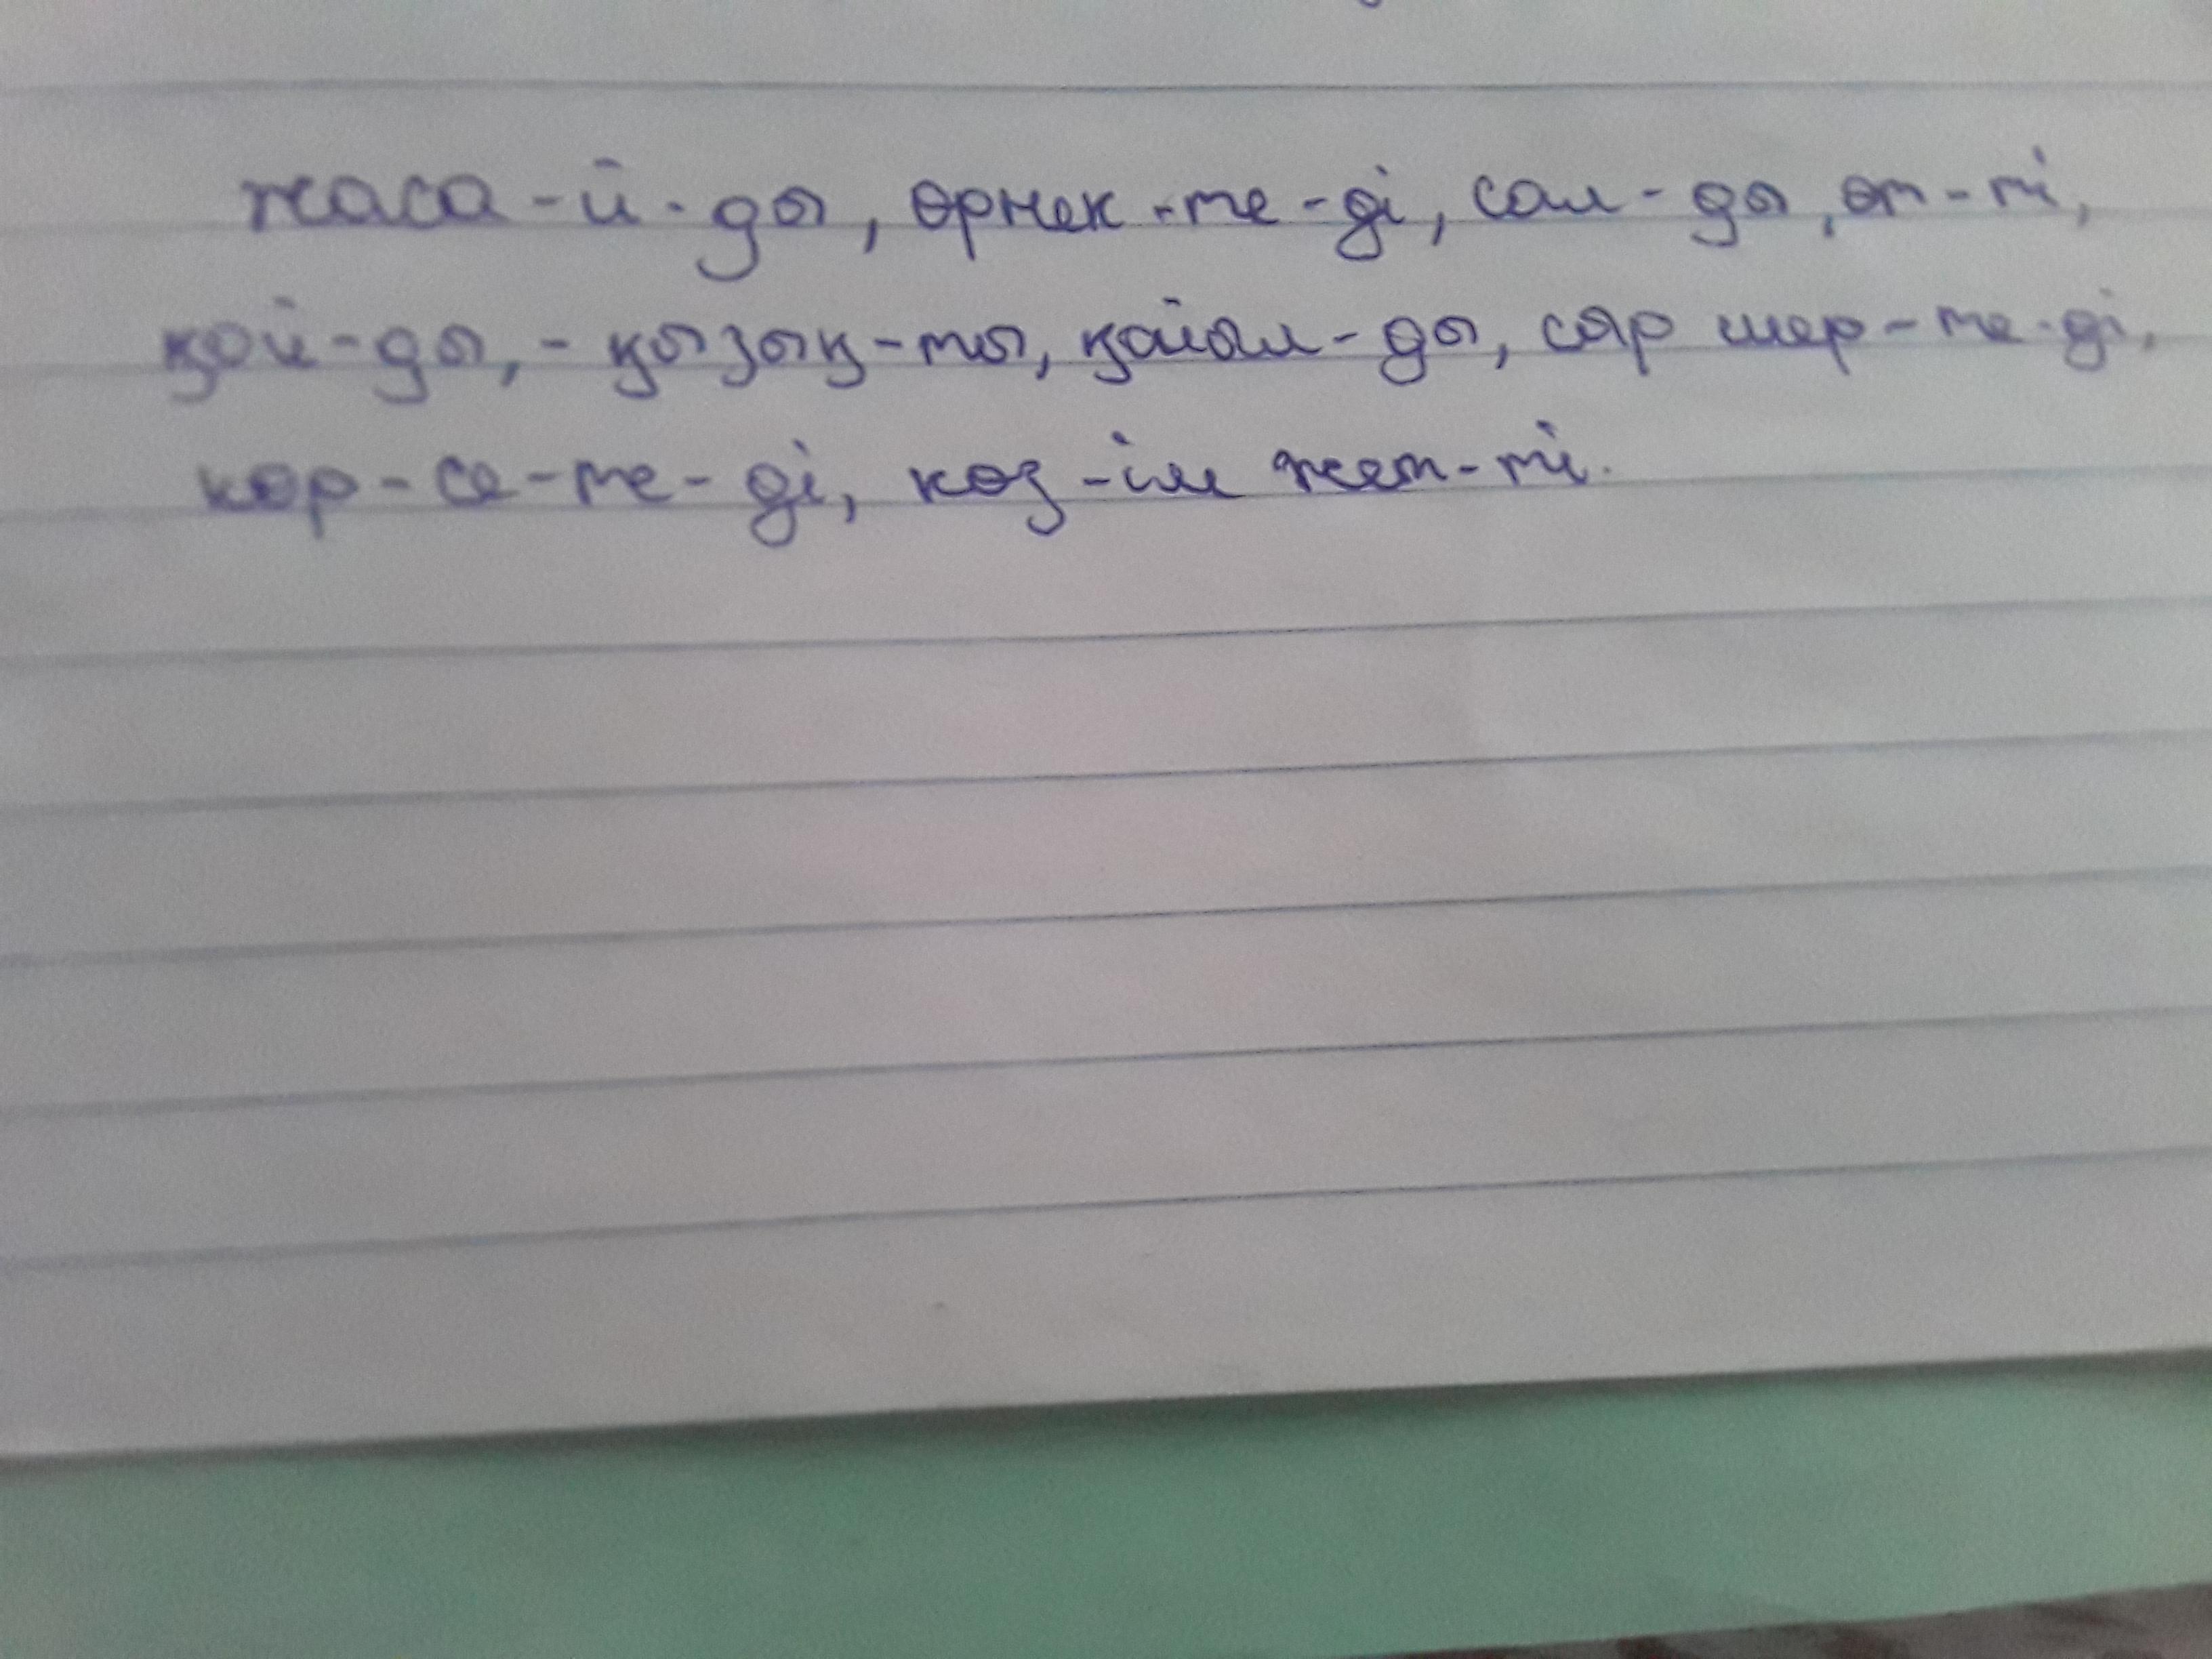 жаса-й-ды, өрнек-те-ді, сал-ды, өт-ті,
қой-ды, -қызық-ты, қайыл-ды, сәр шер-те-ді,
көр-се-те-ді, көз-ім жет-ті.